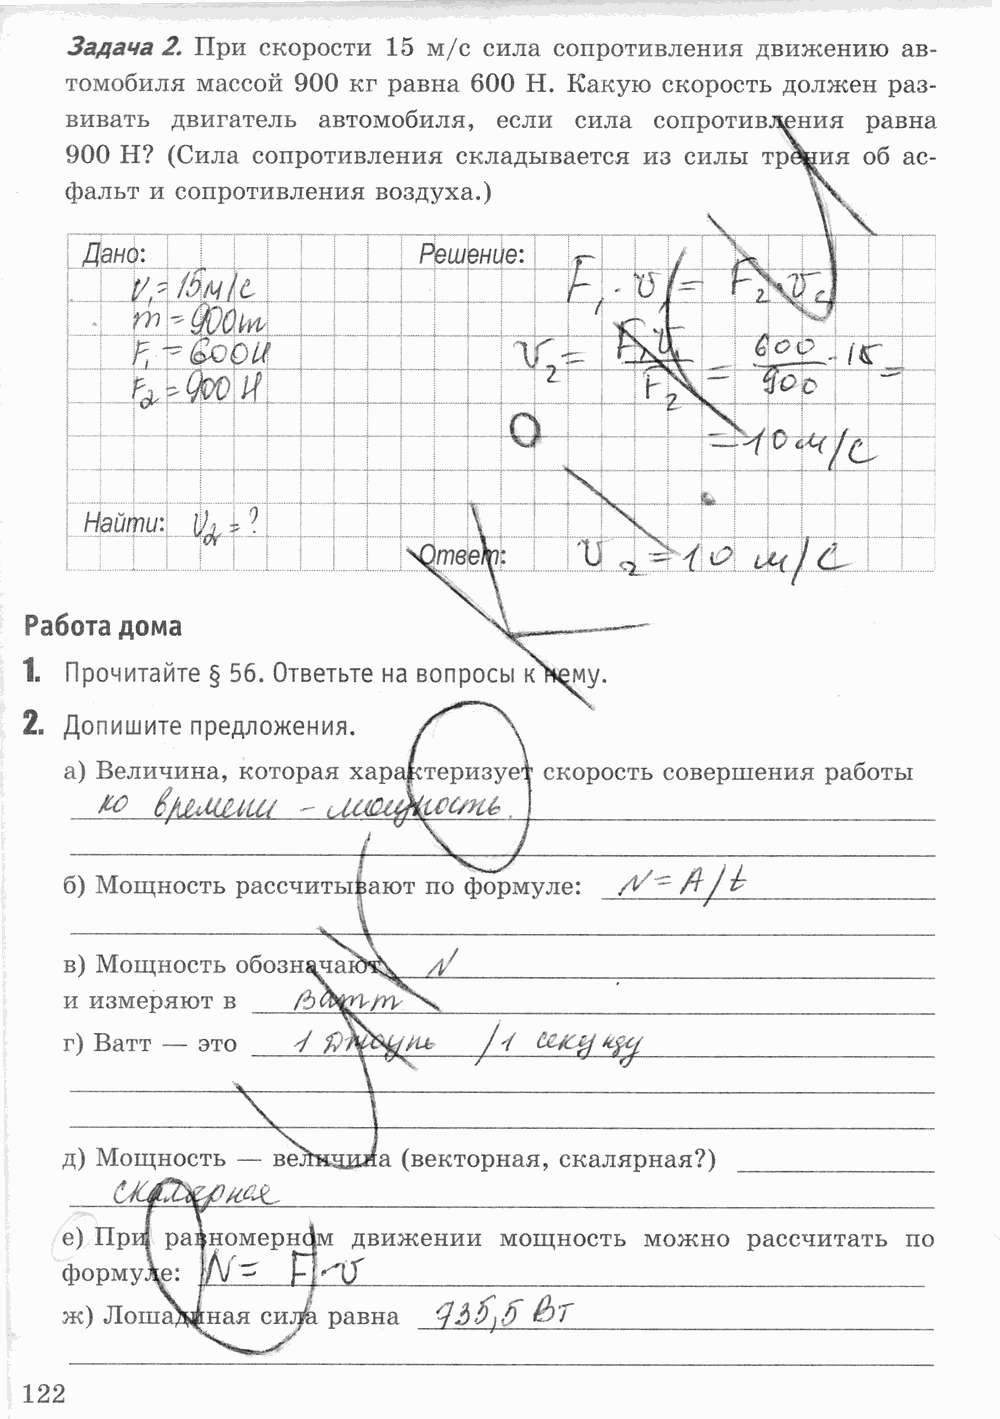 Задача 2. При скорости 15 м/с сила сопротивления движению ав-
томобиля массой 900 кг равна 600 Н. Какую скорость должен раз-
вивать двигатель автомобиля, если сила сопротивления равна
900 Н? (Сила сопротивления складывается из силы трения об ас-
фальт и сопротивления воздуха.)
Дано:
v₁ = 15 м/с
m = 900 т
F₁ = 600 Н
F₂ = 900 Н
Найти: v₂ = ?
Решение:
F₁ · v₁ = F₂ · v₂
v₂ = F₁v₁/F₂ = 600/900 · 15 =
= 10 м/с
Ответ: v₂ = 10 м/с
Работа дома
1. Прочитайте § 56. Ответьте на вопросы к нему.
2. Допишите предложения.
а) Величина, которая характеризует скорость совершения работы
ко времени – мощность.
б) Мощность рассчитывают по формуле: N = A/t
в) Мощность обозначают N
и измеряют в ватт
г) Ватт — это 1 Джоуль / 1 секунду
д) Мощность — величина (векторная, скалярная?)
скалярная
е) При равномерном движении мощность можно рассчитать по
формуле: N = F · v
ж) Лошадиная сила равна 735,5 Вт
122